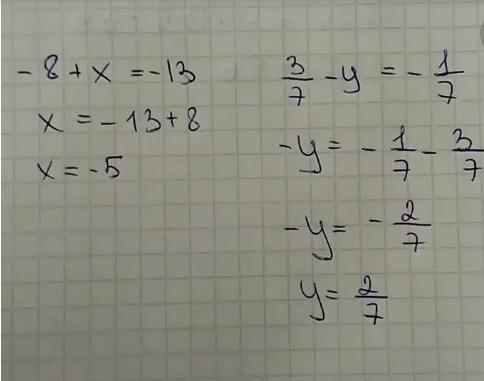 -8+x=-13
x=-13+8
x=-5
3/7-y=-1/7
-y=-1/7-3/7
-y=-2/7
y=2/7